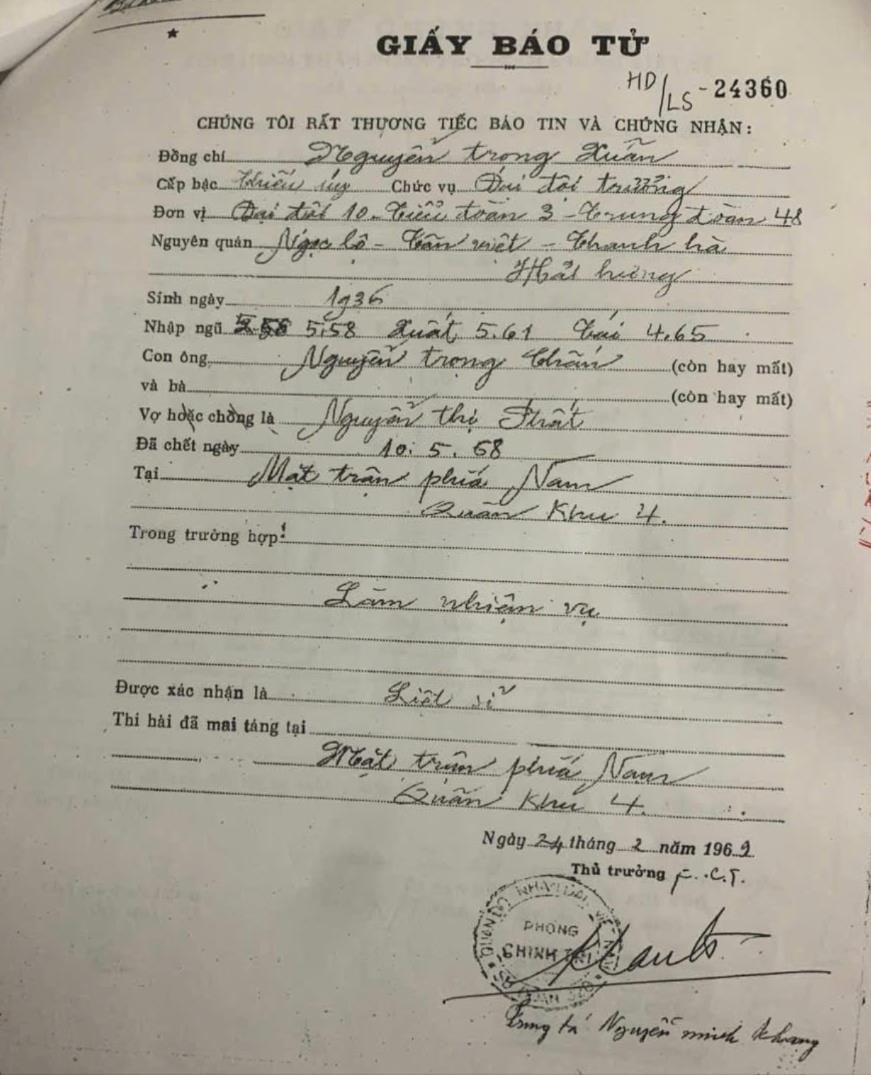 GIẤY BÁO TỬ
HD/LS - 24360
CHÚNG TÔI RẤT THƯƠNG TIẾC BÁO TIN VÀ CHỨNG NHẬN:
Đồng chí Nguyễn trọng Xuân
Cấp bậc thiếu úy Chức vụ Đại đội trưởng
Đơn vị Đại đội 10 - Tiểu đoàn 3 - Trung đoàn 48
Nguyên quán Ngọc lô - Tân việt - Thanh hà
Hải hưng
Sinh ngày 1936
Nhập ngũ 5.58 Xuất 5.61 Tái 4.65
Con ông Nguyễn trọng (còn hay mất)
và bà (còn hay mất)
Vợ hoặc chồng là Nguyễn thị
Đã chết ngày 10.5.68
Tại Mặt trận phía Nam
Quân Khu 4.
Trong trường hợp:
Làm nhiệm vụ
Được xác nhận là Liệt sĩ
Thi hài đã mai táng tại
Mặt trận phía Nam
Quân Khu 4.
Ngày 24 tháng 2 năm 1969
Thủ trưởng
QUÂN ĐỘI NHÂN DÂN VIỆT NAM
PHÒNG
CHÍNH TRỊ
Trung tá Nguyễn minh Khang